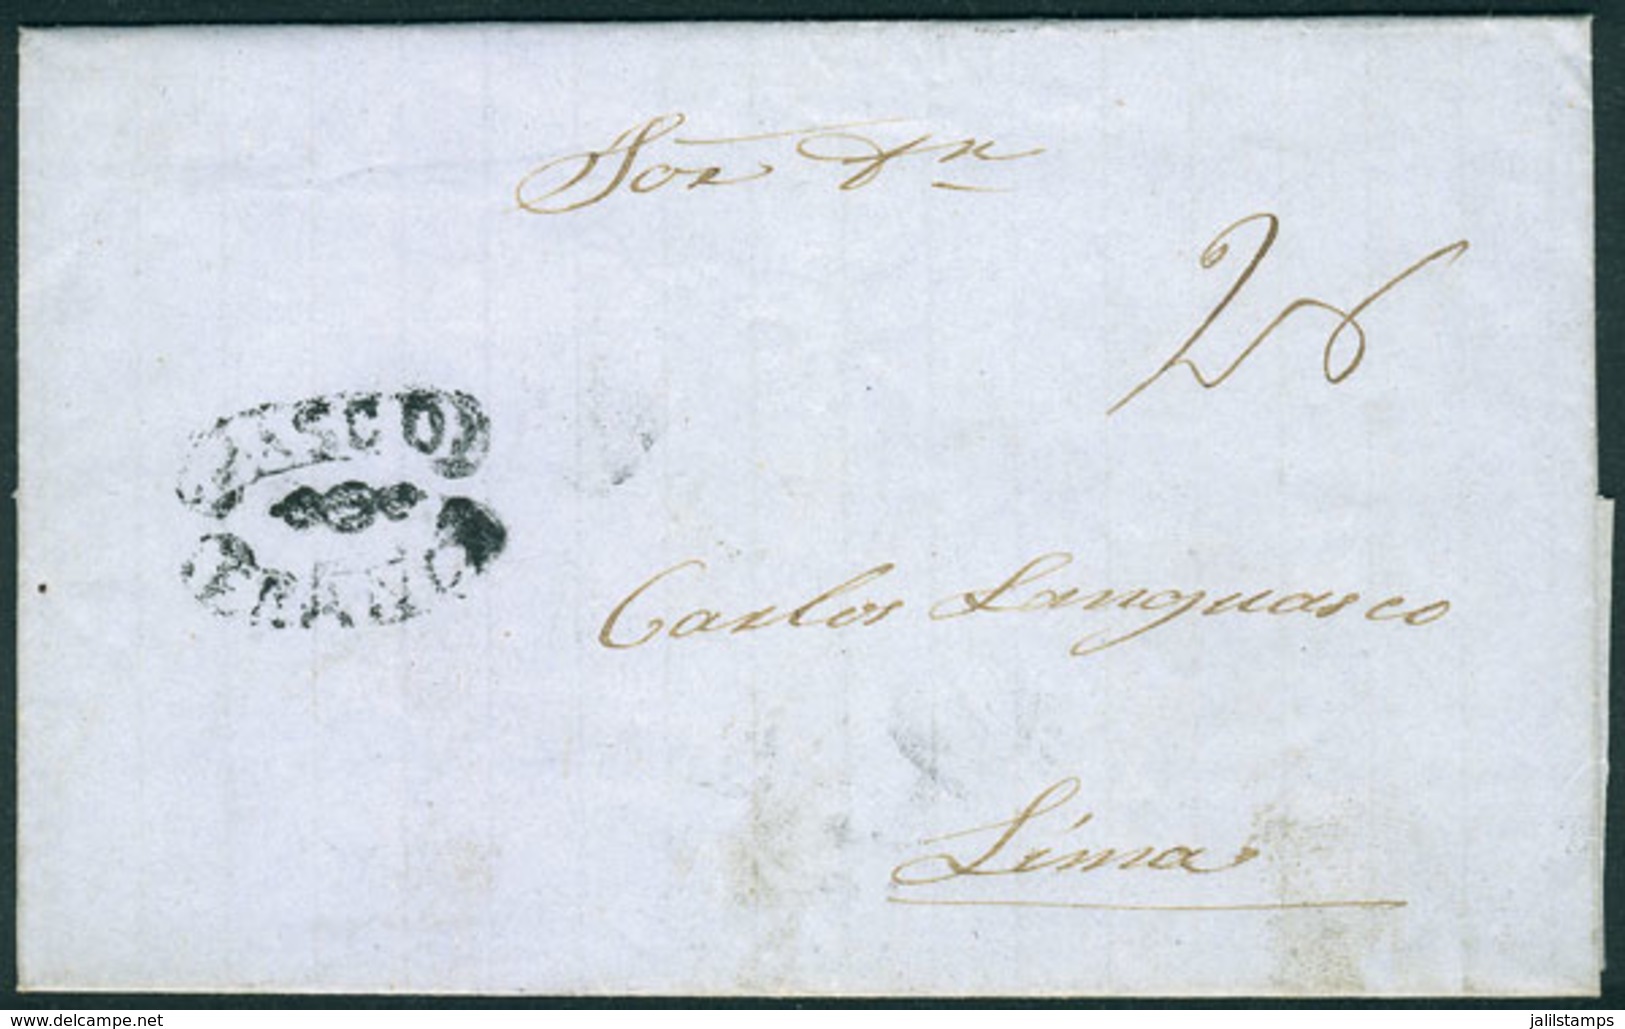 Sōr Dn
2
PASCO
FRANCO
Carlos Languasco
Lima
www.delcampe.net
jalilstamps